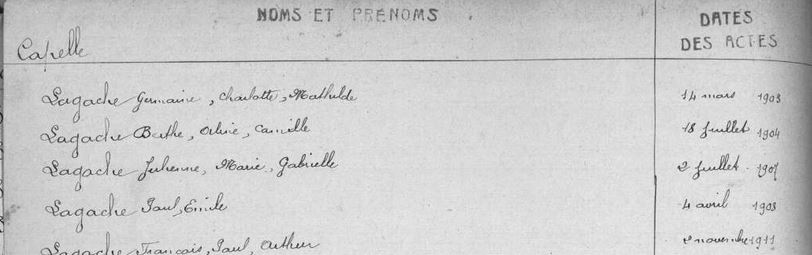 NOMS ET PRÉNOMS
DATES DES ACTES
Capelle
Lagache Germaine, Charlotte, Mathilde 14 mars 1903
Lagache Berthe, Olive, Camille 18 juillet 1904
Lagache Julienne, Marie, Gabrielle 2 juillet 1907
Lagache Paul, Emile 4 avril 1908
Lagache François, Paul, Arthur 2 novembre 1911